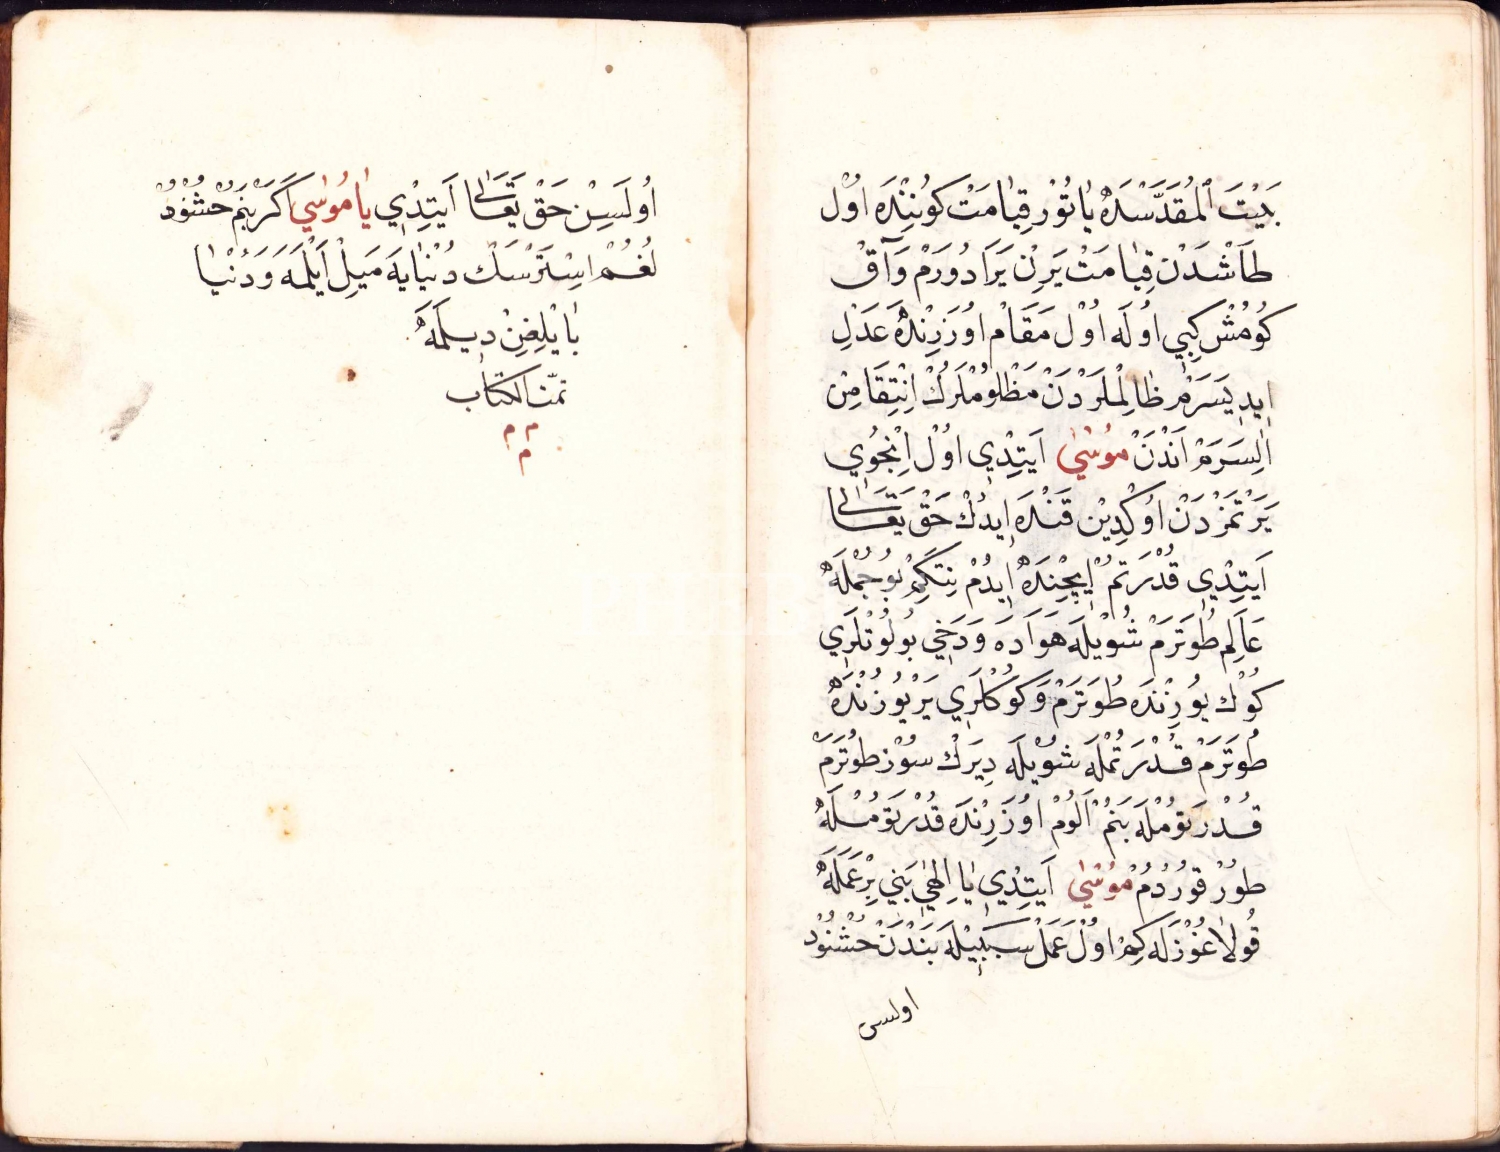 بَيْتَ الْمُقَدَّسَدَهْ يَاتُوْرْ قِيَامَتْ كُونِنْدَهْ اُوْلْ
طَاشْدَنْ قِيَامَتْ يَرِنْ يَرَادُورَمْ وَآقْ
كُومُشْ كِبِي اُولَه اُوْلْ مَقَامْ اُوزَرِنْدَهْ عَدْلِ
اِيدِيسَرَمْ ظَالِمْلَرْدَنْ مَظْلُومْلَرُكْ اِنْتِقَامِنْ
اَلِسَرَمْ اَنْدَنْ مُوسٰي اَيِتْدِي اُوْلْ اِنْجُويِ
يَرَتْمَزْدَنْ اُوكْدِيْن قَنْدَه اِيدُكْ حَقْ تَعَالٰى
اَيِتْدِي قُدْرَتُمْ اِيچِنْدَهْ اِيدُمْ نِتَكِمْ بُو جُمْلَهْ
عَالَمِ طُوتَرَمْ شُويْلَه هَوَادَه وَدَخِي بُولُوتْلَرِي
كُوكْ يُوزِنْدَه طُوتَرَمْ وَكُوكْلَرِي يَرْ يُوزُنْدَهْ
طُوتَرَمْ قُدْرَتُمْلَه شُويْلَه دِيرَكْ سُوْزْ طُوتَرَمْ
قُدْرَتُومْلَه بَنُمْ اَلُومْ اُوزَرِنْدَه قُدْرَتُومْلَهْ
طُورْ قُورْدُمْ مُوسٰي اَيِتْدِي يَا اِلٰهِي بَنِي بِرْ عَمَلَهْ
قُولَاغُوزْلَه كِمْ اُوْلْ عَمَلْ سَبَبِيْلَه بَنْدَنْ خُشْنُودْ
اولسن
اُولَسِنْ حَقْ تَعَالٰى اَيِتْدِي يَا مُوسٰي اَكَرْ بَنُمْ خُشْنُودْ
لُغُمْ اِسْتَرْسَكْ دُنْيَايَه مَيِلْ اَيْلَمَه وَدُنْيَا
بَايْلِغِنْ دِيلَمَهْ
تمت الكتاب
م م
م